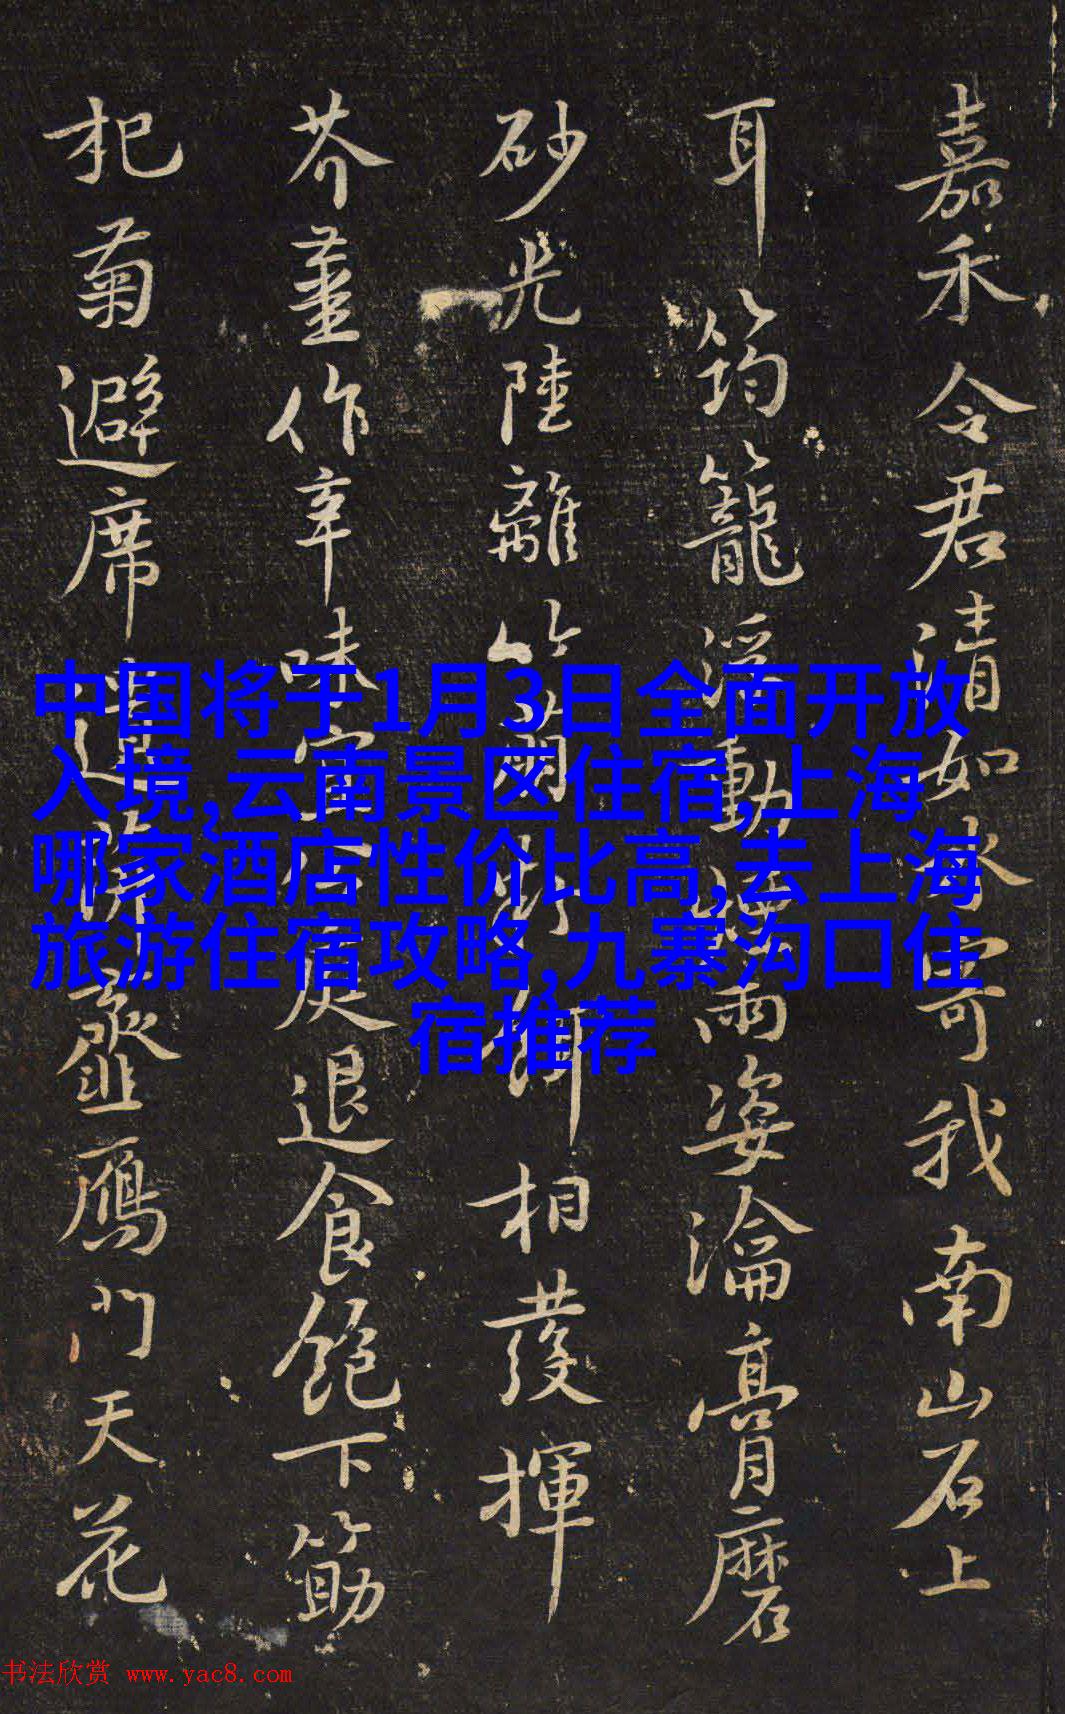 嘉禾令君清如冰寄我南山石上
耳筠籠浮動煙雨姿瀹膏磨
砂光陸離竹萌相發揮
芥薑作辛味宜公庭退食飽下筯
杞菊避席遺虀鴈門天花
中国将于1月3日全面开放
入境,云南景区住宿,上海
哪家酒店性价比高,去上海
旅游住宿攻略,九寨沟口住
宿推荐
书法欣赏 www.yac8.com